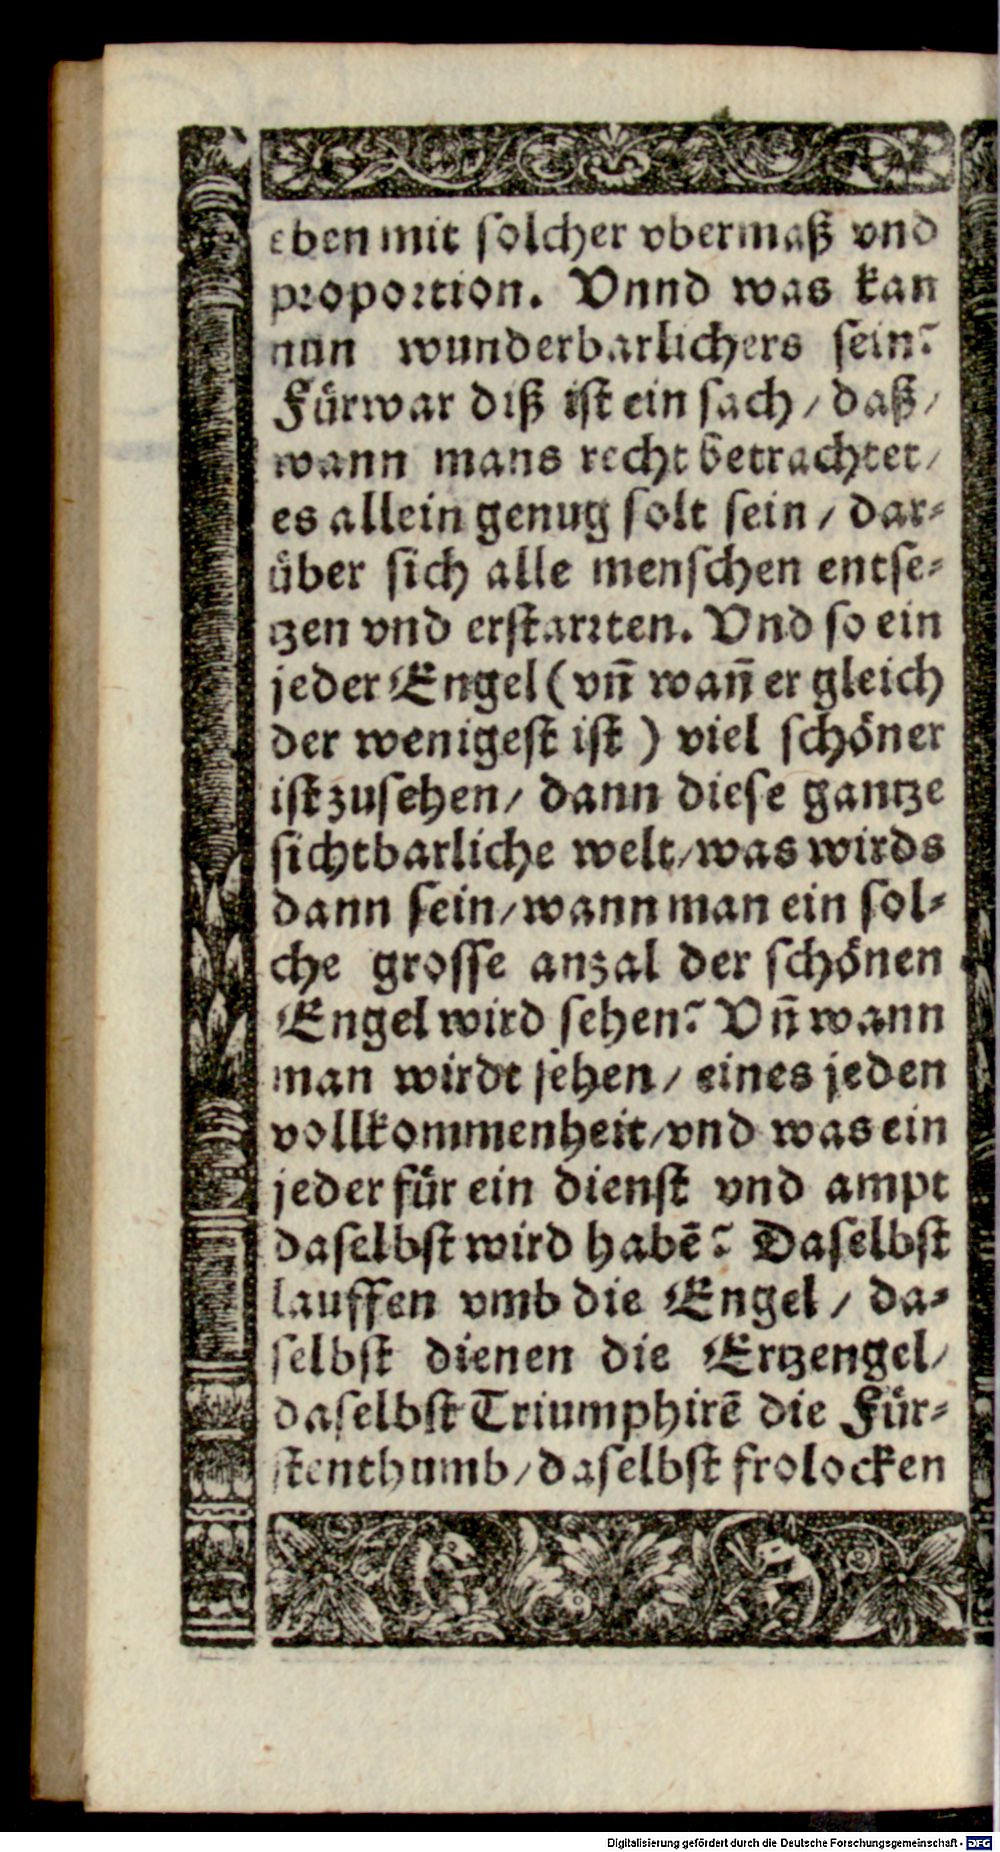 eben mit solcher vbermaß vnd
proportion. Vnnd was kan
nun wunderbarlichers sein?
Fürwar diß ist ein sach / daß /
wann mans recht betrachtet /
es allein genug solt sein / dar⸗
über sich alle menschen entse⸗
tzen vnd erstarrten. Vnd so ein
jeder Engel (vñ wañ er gleich
der wenigest ist) viel schöner
ist zusehen / dann diese gantze
sichtbarliche welt / was wirds
dann sein / wann man ein sol⸗
che grosse anzal der schönen
Engel wird sehen? Vñ wann
man wirdt sehen / eines jeden
vollkommenheit / vnd was ein
jeder für ein dienst vnd ampt
daselbst wird habē? Daselbst
lauffen vmb die Engel / da⸗
selbst dienen die Ertzengel /
daselbst Triumphirē die Für⸗
stenthumb / daselbst frolocken
Digitalisierung gefördert durch die Deutsche Forschungsgemeinschaft - DFG